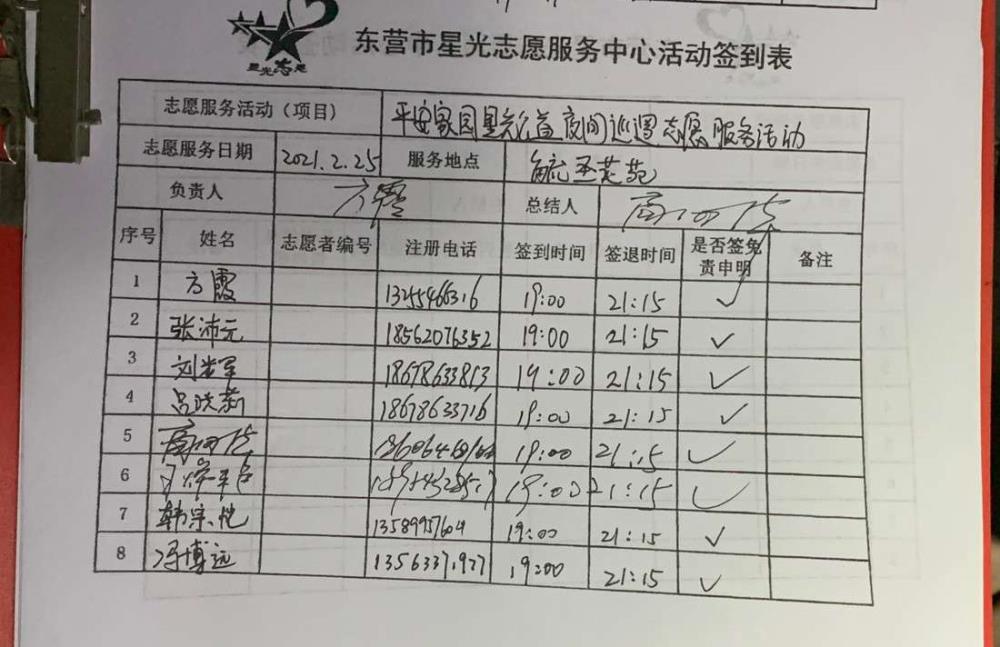 星光志愿
东营市星光志愿服务中心活动签到表
志愿服务活动（项目） 平安家园星光 夜间巡逻志愿服务活动
志愿服务日期 2021.2.25 服务地点
负责人 方霞 总结人
序号 姓名 志愿者编号 注册电话 签到时间 签退时间 是否签免责申明 备注
1 方霞 13255466316 19:00 21:15 ✓
2 张沛元 18562076352 19:00 21:15 ✓
3 18678633813 19:00 21:15 ✓
4 18678633716 19:00 21:15 ✓
5 19:00 21:15 ✓
6 19:00 21:15 ✓
7 韩宗悦 13589957604 19:00 21:15 ✓
8 冯博远 19:00 21:15 ✓